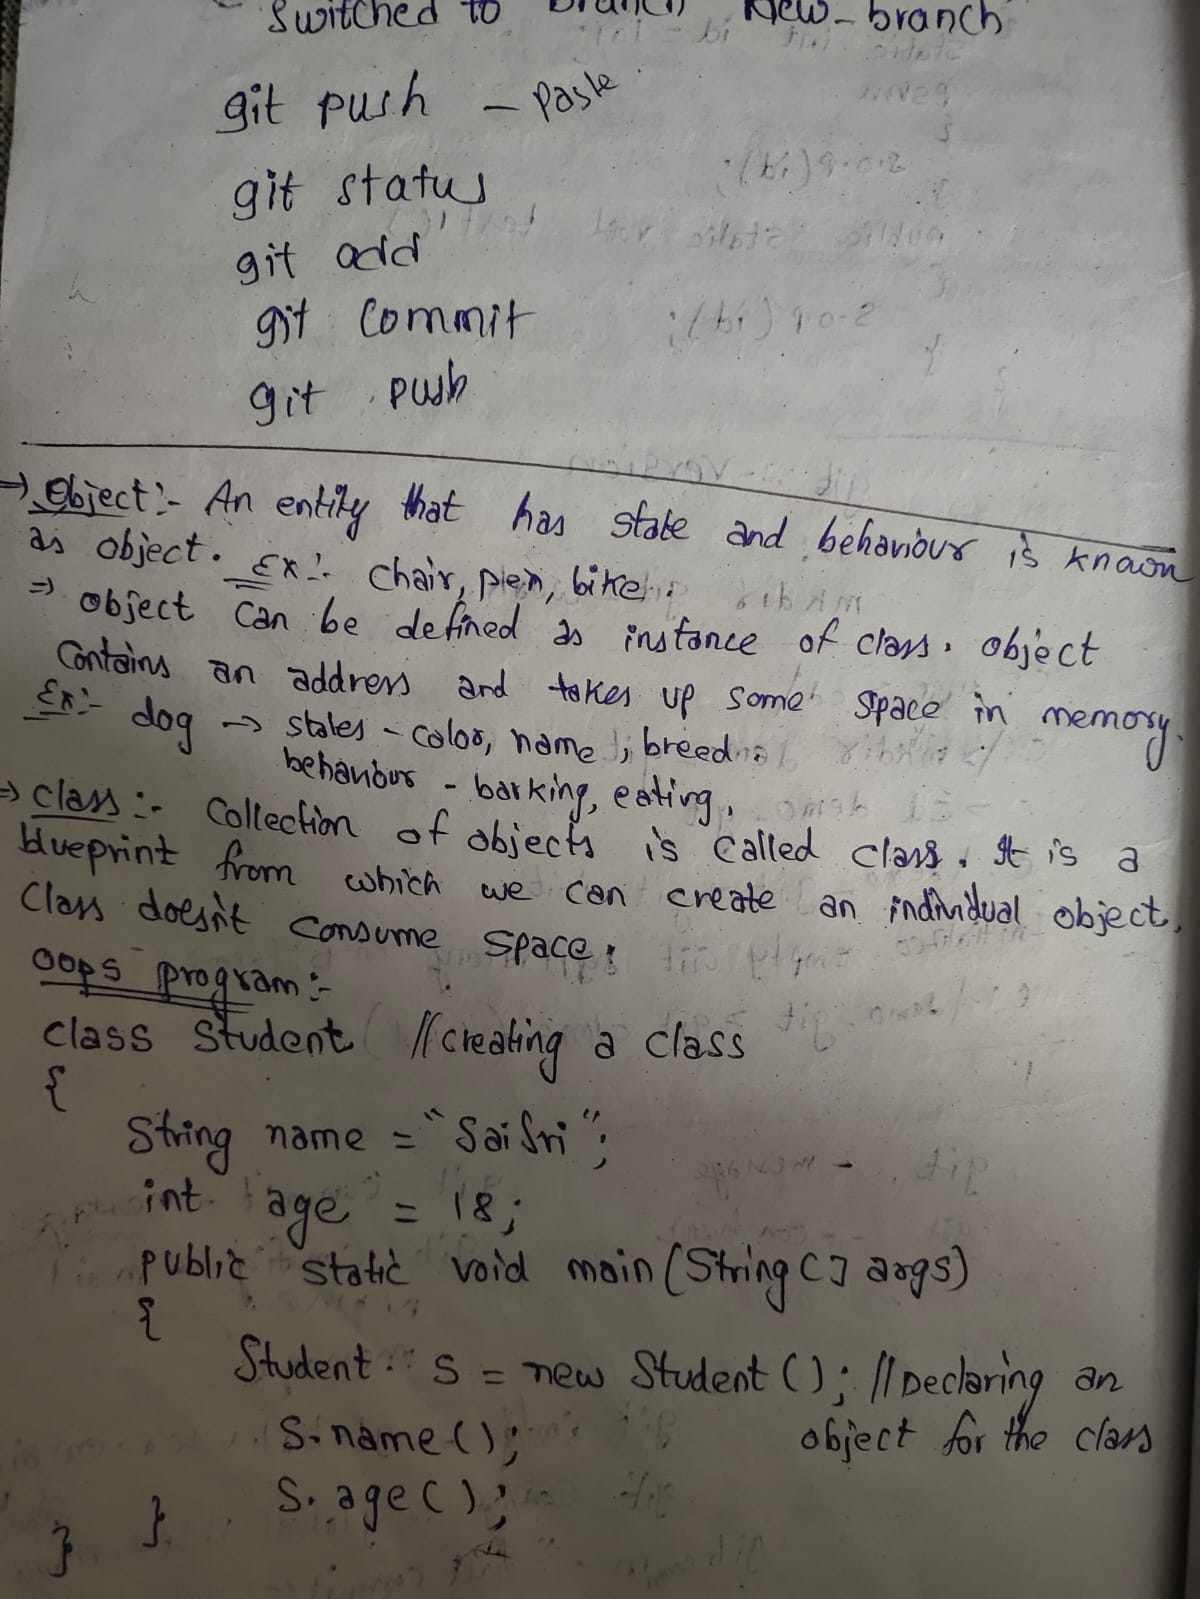 Switched to branch New-branch
git push - Paste
git status
git add
git commit
git push
⇒ Object:- An entity that has state and behaviour is known
as object. Ex:- Chair, pen, bike.
⇒ object can be defined as instance of class. object
Contains an address and takes up some space in memory.
Ex:- dog → states - color, name, breed.
behaviour - barking, eating,
⇒ class:- Collection of objects is called class. It is a
blueprint from which we can create an individual object.
Class doesn't consume space.
OOPS program:-
class Student //creating a class
{
String name = "SaiSri";
int age = 18;
public static void main(String[] args)
{
Student s = new Student(); //Declaring an
object for the class
s.name();
s.age();
}
}